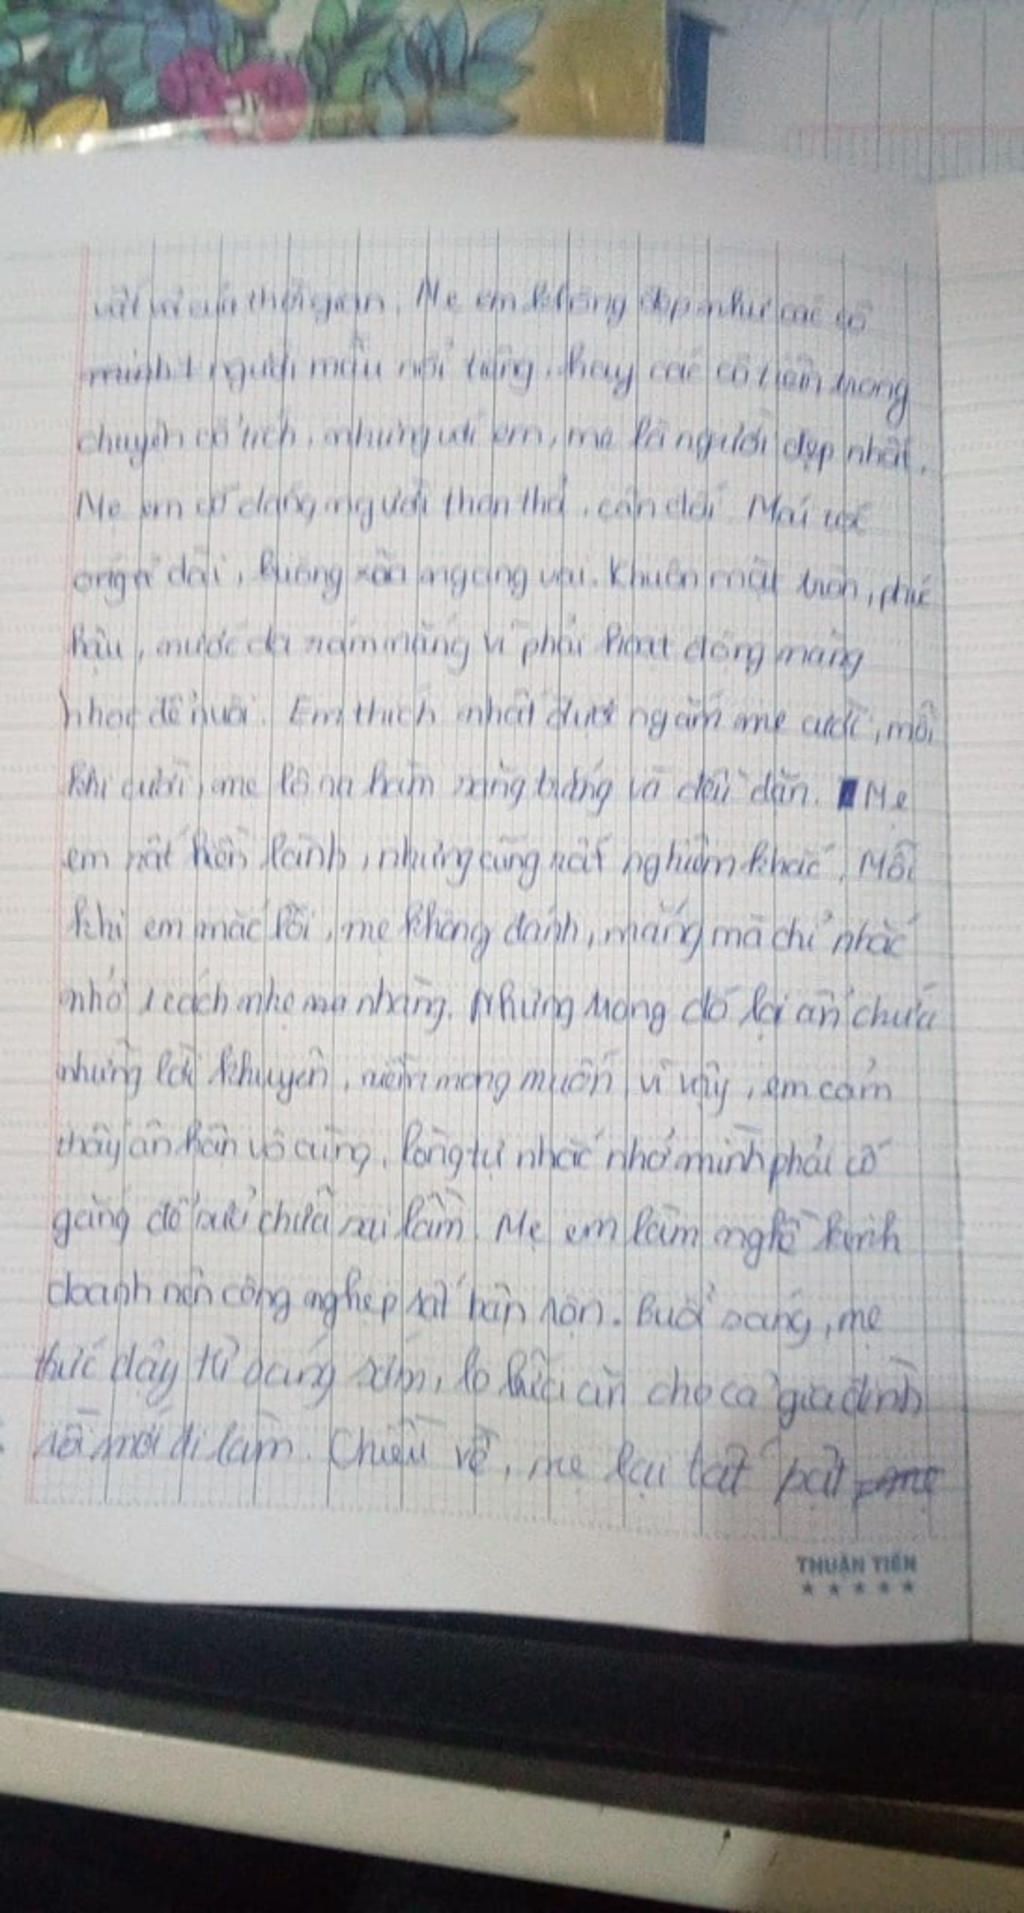 vất vả của thời gian. Mẹ em không đẹp như các cô
người mẫu nổi tiếng, hay các cô tiên trong
chuyện cổ tích, nhưng với em, mẹ là người đẹp nhất.
Mẹ em có dáng người thon thả, cân đối. Mái tóc
dài, buông xõa ngang vai. Khuôn mặt tròn, phúc
hậu, nước da rám nắng vì phải hoạt động
nhọc để nuôi. Em thích nhất được ngắm mẹ cười, mỗi
khi cười, mẹ lộ ra hàm răng trắng và đều dặn. Mẹ
em rất hiền lành, nhưng cũng rất nghiêm khắc. Mỗi
khi em mắc lỗi, mẹ không đánh, mắng mà chỉ nhắc
nhở 1 cách nhẹ nhàng. Nhưng trong đó lại ẩn chứa
những lời khuyên, niềm mong muốn, vì vậy, em cảm
thấy ân hận vô cùng, lòng tự nhắc nhở mình phải cố
gắng để sửa chữa sai lầm. Mẹ em làm nghề kinh
doanh nên công nghiệp rất bận rộn. Buổi sáng, mẹ
thức dậy từ sáng sớm, lo bữa ăn cho cả gia đình
rồi mới đi làm. Chiều về, mẹ lại tất bật
THUẬN TIẾN